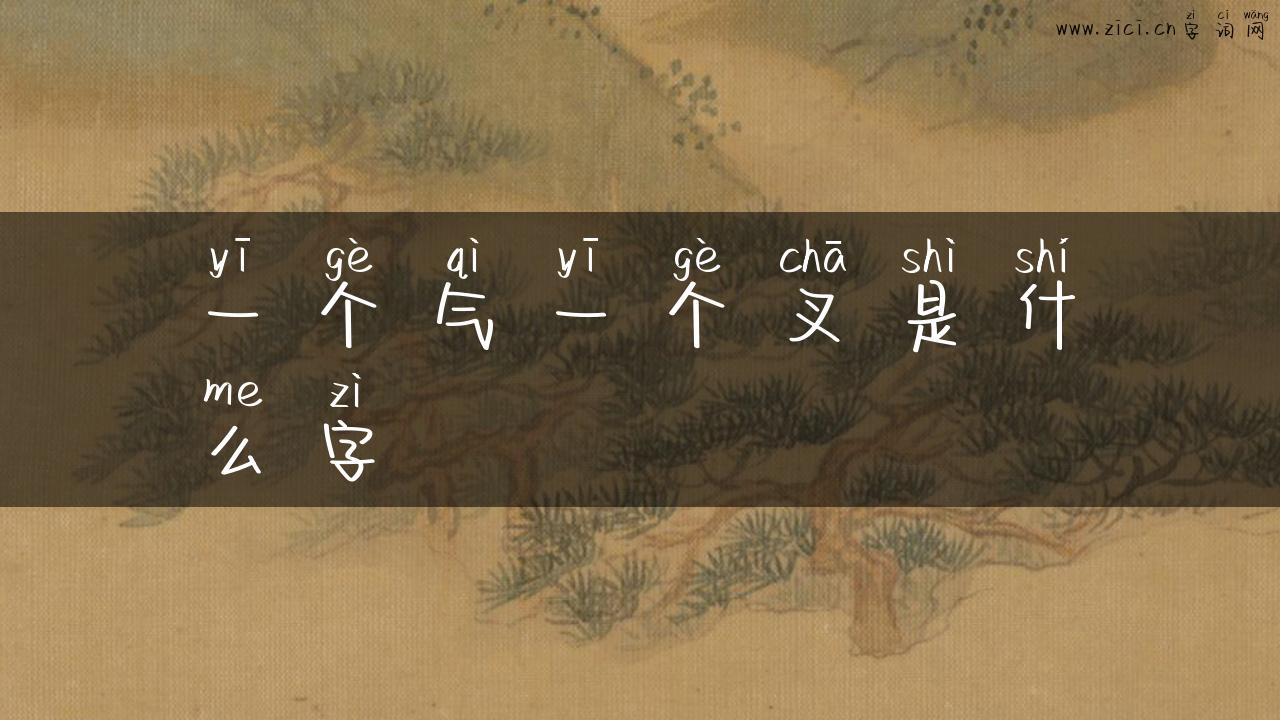 zì cí wǎng
www.zīcī.cn 字 词 网
yī gè qì yī gè chā shì shí
一 个 气 一 个 叉 是 什
me zì
么 字